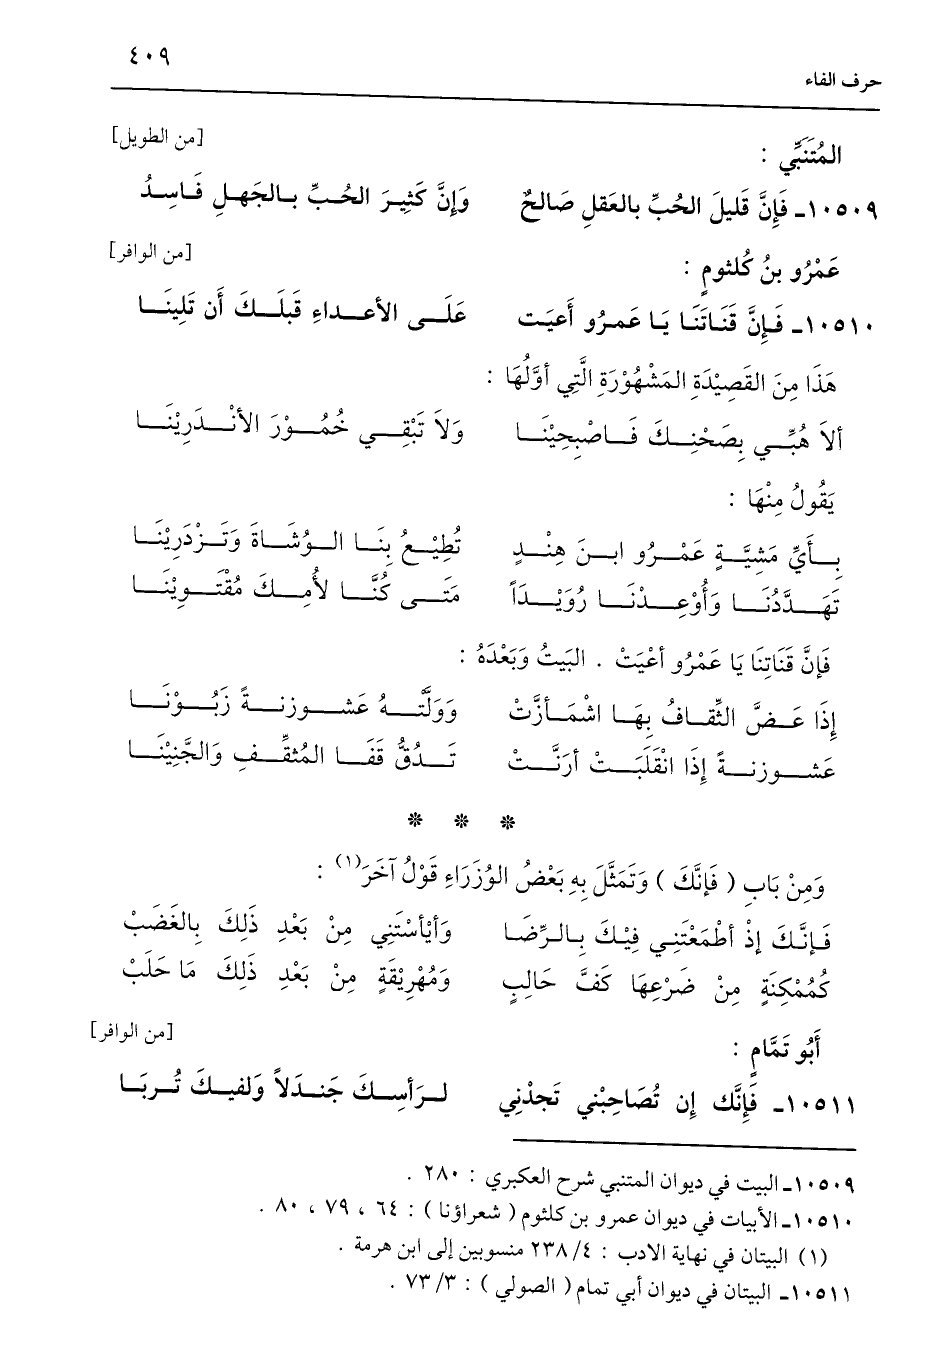 ٤٠٩
حرف الفاء
المُتَنَبِّي : [من الطويل]
١٠٥٠٩ـ فَإِنَّ قَلِيلَ الحُبِّ بالعَقلِ صَالحٌ وَإنَّ كَثِيرَ الحُبِّ بالجَهلِ فَاسِدُ
عَمْرُو بنُ كُلثومٍ : [من الوافر]
١٠٥١٠ـ فَإنَّ قَنَاتَنَا يَا عَمرُو أَعيَت عَلَى الأعداءِ قَبلَكَ أَن تَلِينَا
هَذَا مِنَ القَصِيْدَةِ المَشْهُوْرَةِ الَّتِي أوَّلُهَا :
ألاَ هُبِّي بِصَحْنِكَ فَاصْبحِيْنَا وَلاَ تَبْقِي خُمُوْرَ الأنْدَرِيْنَا
يَقُولُ مِنْهَا :
بِأَيِّ مَشِيَّةٍ عَمْرُو ابنَ هِنْدٍ تُطِيْعُ بِنَا الوُشَاةَ وَتَزْدَرِيْنَا
تَهَدَّدُنَا وَأُوْعِدْنَا رُوَيْدَاً مَتَى كُنَّا لأُمِكَ مُقْتَوِيْنَا
فَإنَّ قَنَاتِنَا يَا عَمْرُو أعْيَتْ . البَيتُ وَبَعْدَهُ :
إذَا عَضَّ الثِّقَافُ بِهَا اشْمَأزَّتْ وَوَلَّتهُ عَشوزنةً زَبُوْنَا
عَشوزنةً إذَا انْقَلَبَتْ أرَنَّتْ تَدُقُّ قَفَا المُثقِّفِ وَالجَّنِيْنَا
* * *
وَمِنْ بَابِ ( فَإنَّكَ ) وَتَمثَّلَ بِهِ بَعْضُ الوُزَرَاءِ قَوْلُ آخَرَ(١) :
فَإنَّكَ إذْ أطْمَعْتَنِي فِيْكَ بِالرِّضَا وَأيْأسْتَنِي مِنْ بَعْدِ ذَلِكَ بِالغَضَبْ
كَمُمْكِنَةٍ مِنْ ضَرْعِهَا كَفَّ حَالِبٍ وَمُهْرِيْقَةٍ مِنْ بَعْدِ ذَلِكَ مَا حَلَبْ
أَبُو تَمَّامٍ : [من الوافر]
١٠٥١١ـ فَإِنَّك إن تُصَاحِبْني تَجدْنِي لرَأسِكَ جَندَلاً وَلفيكَ تُربَا
١٠٥٠٩ـ البيت في ديوان المتنبي شرح العكبري : ٢٨٠ .
١٠٥١٠ـ الأبيات في ديوان عمرو بن كلثوم ( شعراؤنا ) : ٦٤ ، ٧٩ ، ٨٠ .
(١) البيتان في نهاية الادب : ٤/ ٢٣٨ منسوبين إلى ابن هرمة .
١٠٥١١ـ البيتان في ديوان أبي تمام ( الصولي ) : ٣/ ٧٣ .